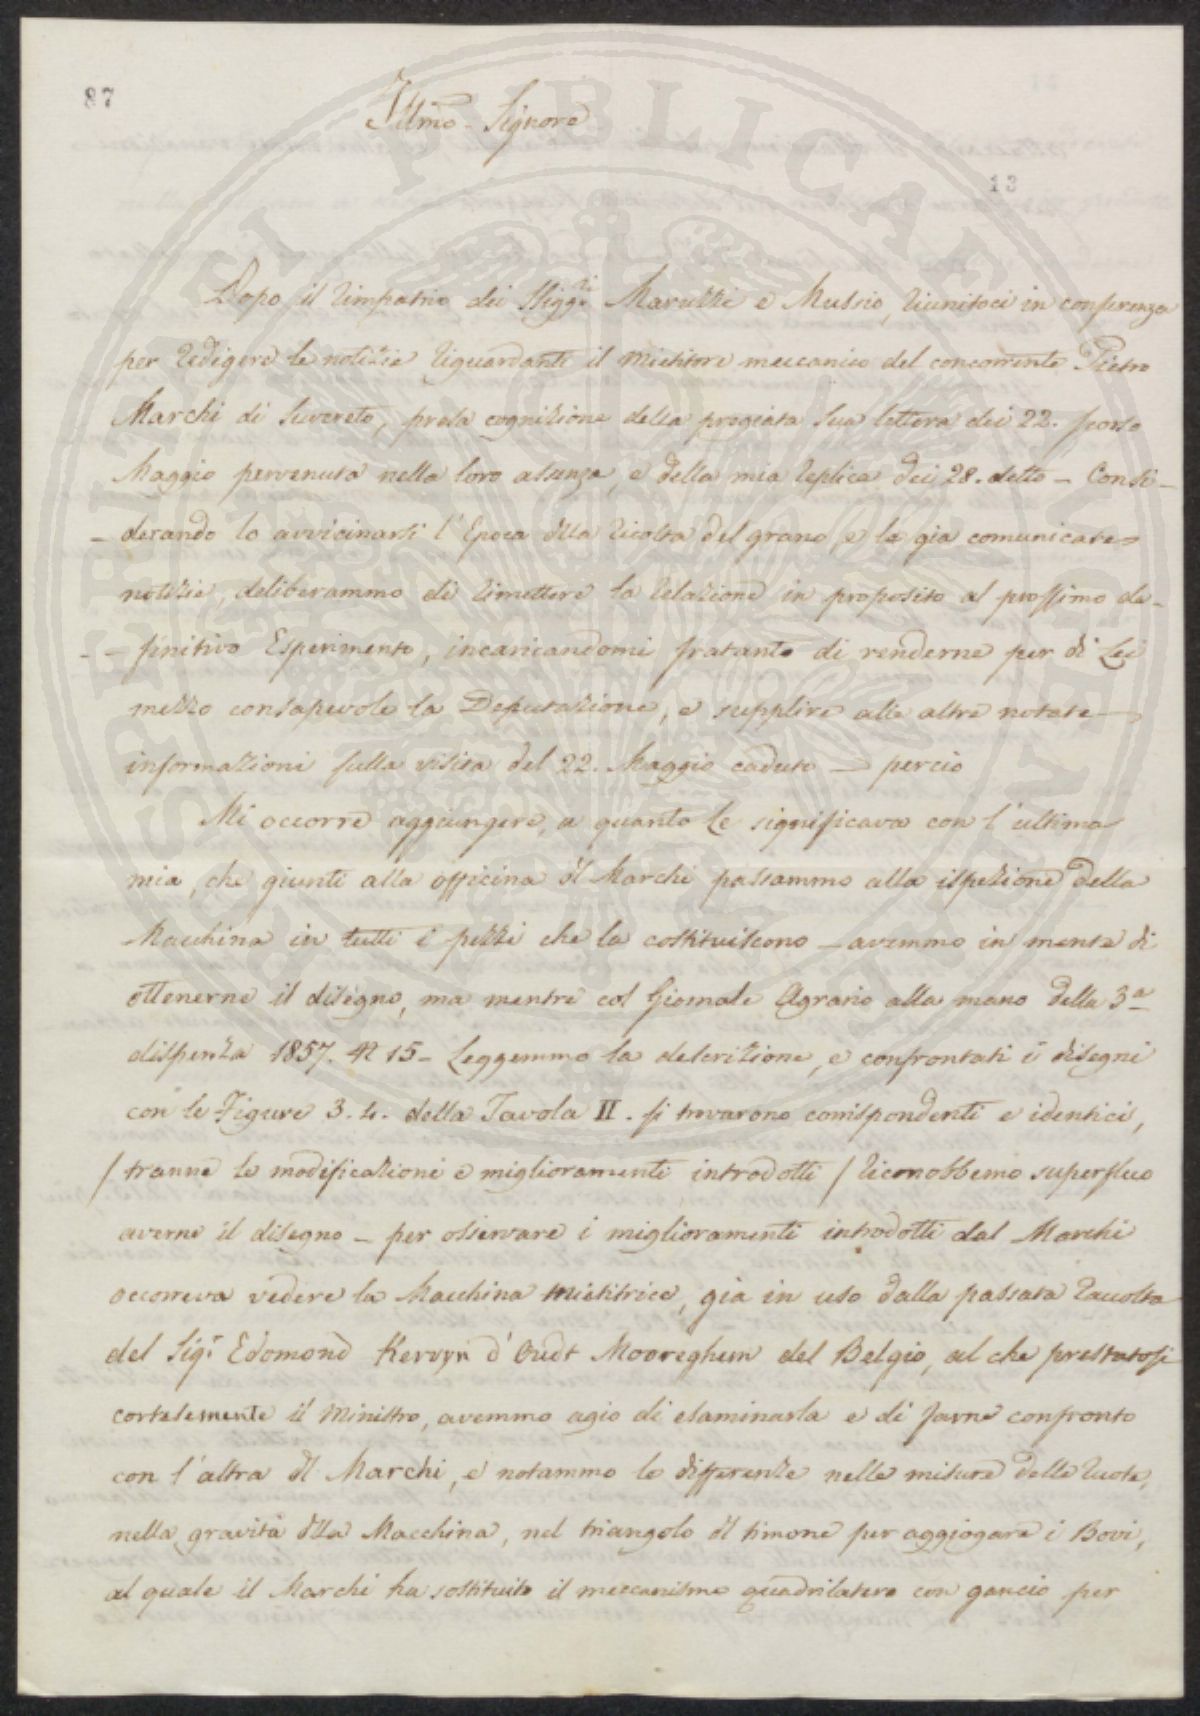 87
Illmo. Signore
13
Dopo il rimpatrio dei Sigg.ri Maruzzi e Mussio, riunitoci in conferenza
per redigere le notizie riguardanti il mietitore meccanico del concorrente Pietro
Marchi di Suvereto, presa cognizione della pregiata Sua lettera dei 22. scorso
Maggio pervenuta nella loro assenza, e della mia replica dei 28. detto – Consi-
- derando lo avvicinarsi l'Epoca dlla ricolta del grano, e le gia comunicate
notizie, deliberammo di rimettere la relazione in proposito al prossimo de-
- finitivo Esperimento, incaricandomi fratanto di renderne per di Lei
mezzo consapevole la Deputazione, e supplire alle altre notate
informazioni sulla visita del 22. Maggio caduto – percio
Mi occorre aggiungere, a quanto Le significava con l'ultima
mia, che giunti alla officina dl Marchi passammo alla ispezione della
Macchina in tutti i pezzi che la costituiscono – avemmo in mente di
ottenerne il disegno, ma mentre col Giornale Agrario alla mano della 3a
dispensa 1857. N 15 – Leggemmo la descrizione, e confrontati i disegni
con le Figure 3. 4. della Tavola II. si trovarono corrispondenti e identici,
/ tranne le modificazioni e miglioramenti introdotti / riconobbemo superfluo
averne il disegno – per osservare i miglioramenti introdotti dal Marchi
occorreva vedere la Macchina mietitrice, già in uso dalla passata raccolta
del Sig.r Edomond Kervyn d'Oudt Mooreghem del Belgio, al che prestatosi
cortesemente il Ministro, avemmo agio di esaminarla e di farne confronto
con l'altra dl Marchi, e notammo le differenze nelle misure delle ruote,
nella gravità dlla Macchina, nel triangolo dl timone per aggiogare i Bovi,
al quale il Marchi ha sostituito il meccanismo quadrilatero con gancio per
PROSPERITATI PUBLICAE AUGENDAE